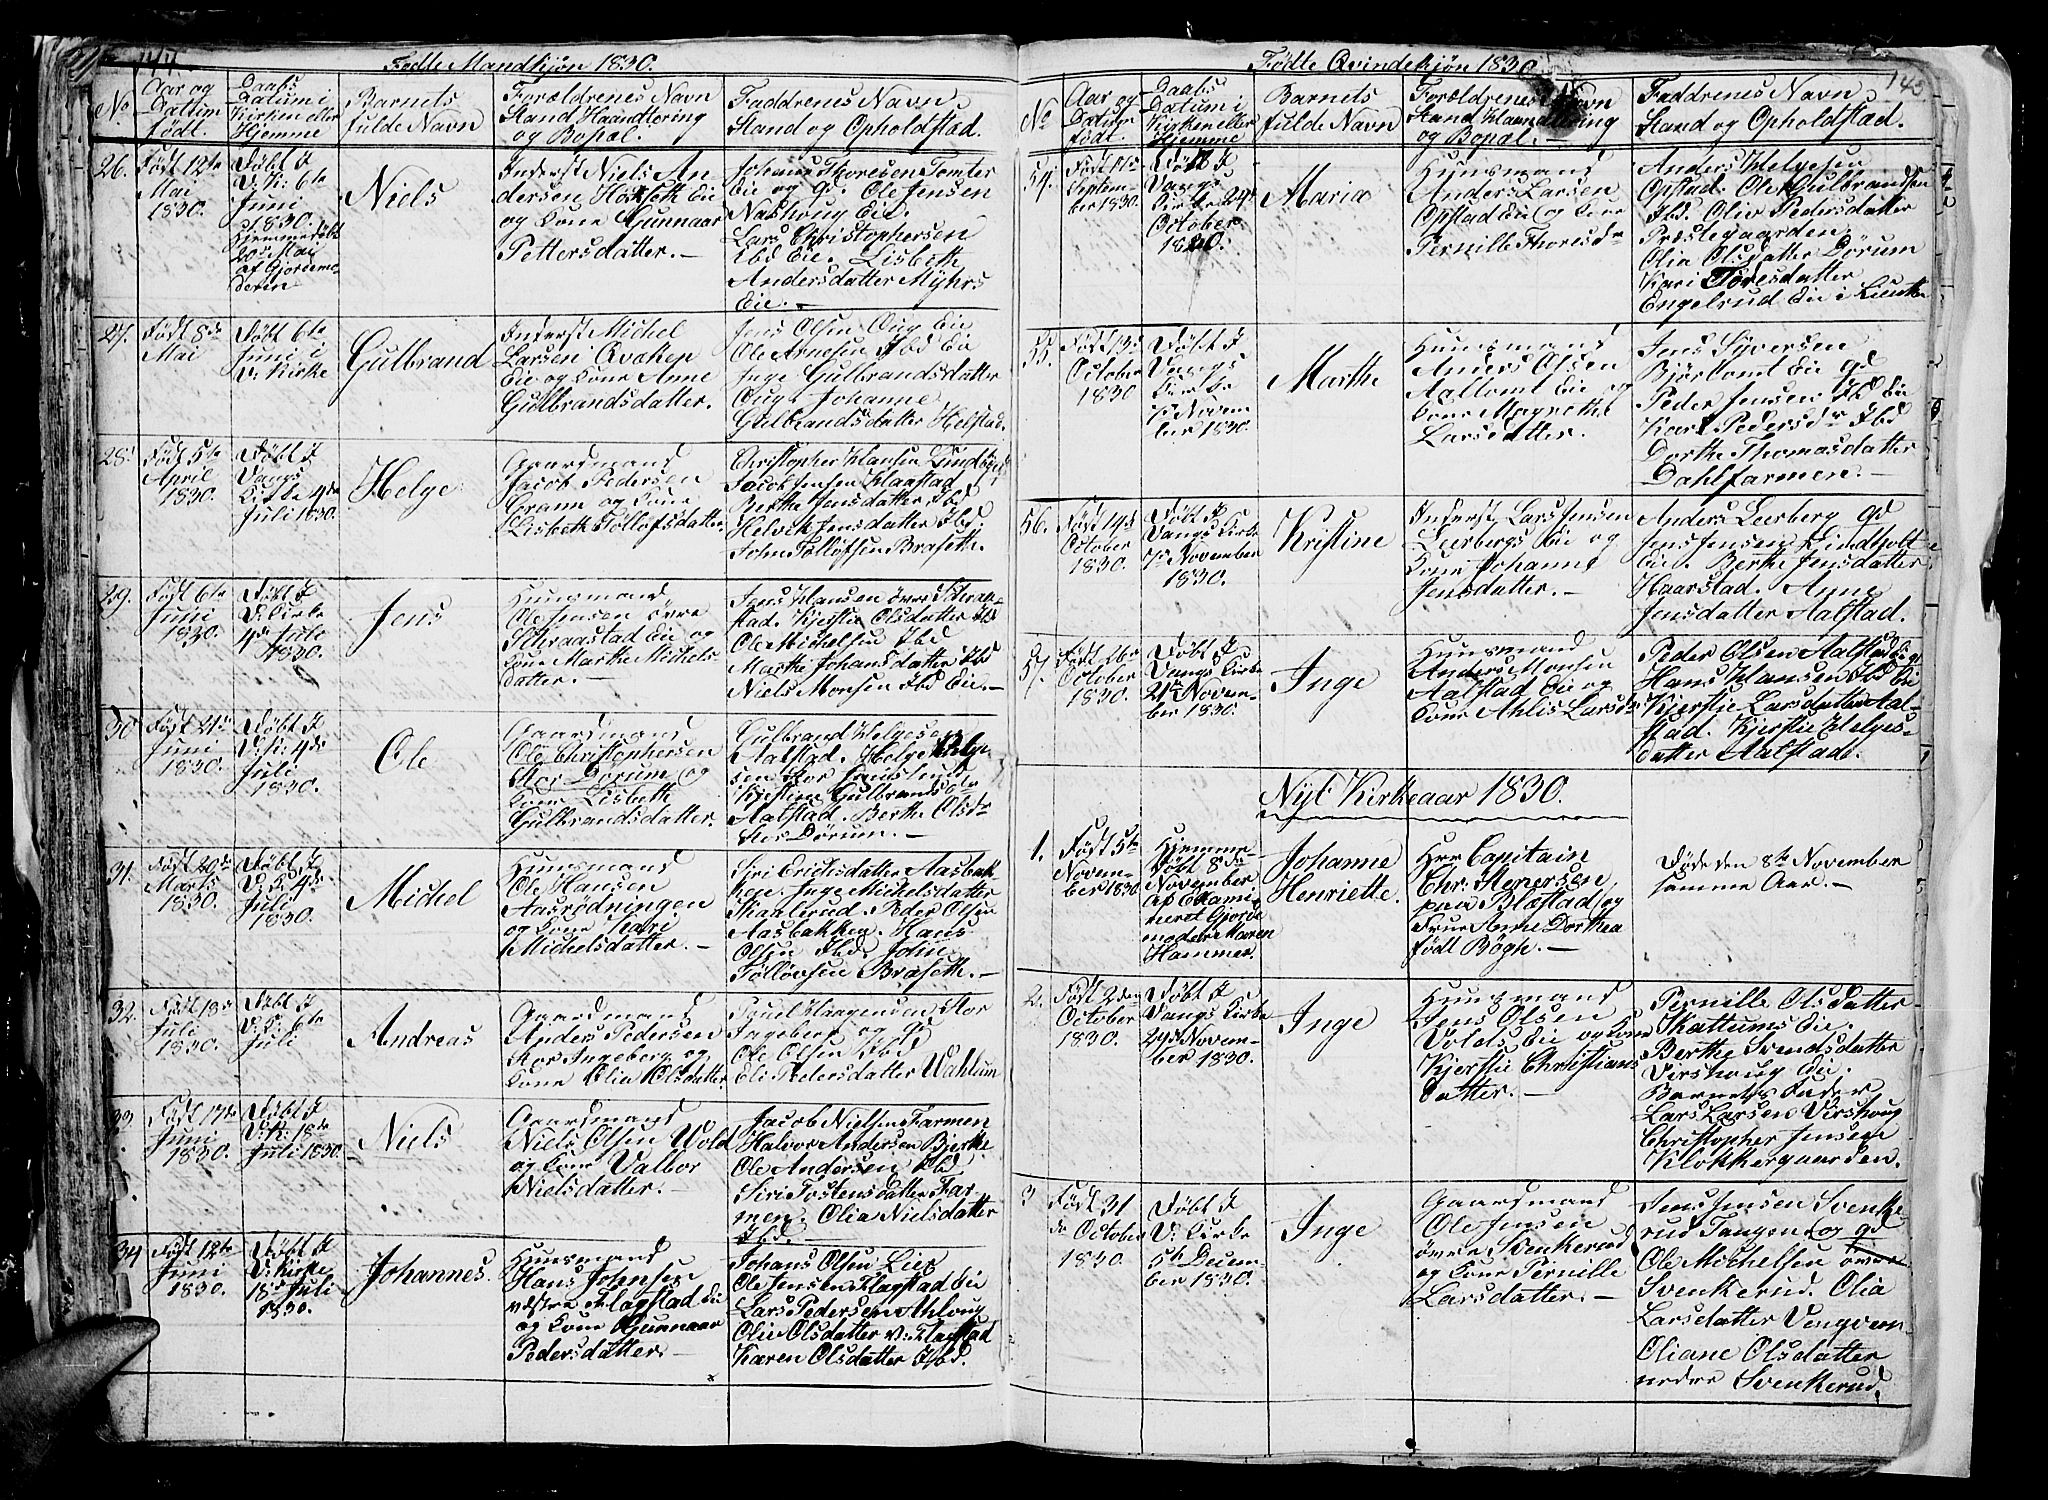 144.
Fødte Mandkjøn 1830.
No
Aar og
Datum
født.
Daabs
Datum i
Kirken eller
Hjemme
Barnets
fulde Navn
Forældrenes Navn
Stand Haandtering
og Bopæl.
Faddrenes Navn
Stand og Opholdstad.
26.
Født 12te
Mai
1830.
Døbt I
V: K: 6te
Juni
1830.
Hjemmedøbt
20de Mai
af Gjordemo-
deren
Niels
Inderst Niels An
dersen Eie
og Kone Gunnaar
Pettersdatter. —
Johannes Thoresen Tomter
Eie og Qv. Ole Jensen
Nashoug Eie.
Lars Christophersen
Ibd Eie. Lisbeth
Andersdatter Myhrs
Eie. —
27.
Født 8de
Mai
Døbt 6te
Juni i
V: Kirke
Gulbrand
Inderst Michel
Larsen Qvaken
Eie og Kone Anne
Gulbrandsdatter.
Jens Olsen Eie
Ole Arnesen Ibd Eie
Inge Gulbrandsdatter
Johanne
Gulbrandsdatter Helstad.
28.
Født 5te
April
1830.
Døbt I
Vangs
Kirke 4de
Juli 1830.
Helge
Gaardmand
Jacob Pedersen
Gran og Kone
Lisbeth Tollofsdatter.
Christopher Hansen
Jacob Jensen Haastad
Berthe Jensdatter Ibd
Helvek Jensdatter Ibd.
John Tolløfsen Braseth.
29.
Født 6te
Juni
1830.
Døbt I
V: Kirke
4de Julo
1830.
Jens
Huusmand
Ole Jensen øvre
Skraastad Eie og
Kone Marthe Michels-
datter. —
Jens Hansen øvre Skraa-
stad. Kjerstie Olsdatter Ibd
Ole Michelsen Ibd
Marthe Johansdatter Ibd
Niels Monsen Ibd Eie. —
30.
Født 21de
Juni
1830.
Døbt I
V: K: 4de
Juli
1830.
Ole
Gaardmand
Ole Christophersen
Stor Dørum og
Kone Lisbeth
Gulbrandsdatter.
Gulbrand Helgesen
Aalstad. Helge Helge-
sen Stor
Kjestien Gulbrandsdtr
Aalstad. Berthe Olsdr
Stor Dørum. —
31.
Født 20de
Marts
1830.
Døbt I
V: K: 4de
Juli
1830.
Michel
Huusmand
Ole Hansen
Aasrødningen
og Kone Kari
Michelsdatter. —
Siri Erichsdatter Aasbak
ken. Inge Michelsdatter
Kaalerud. Peder Olsen
Aasbakken. Hans
Olsen Ibd. John
Tolløvsen Braseth. —
32.
Født 18de
Juli
1830.
Døbt I
V: K: 6te
Juli
Andreas
Gaardmand
Anders Pedersen
Stor Ingeberg og
Kone Olia Olsdatter
Poul Stor
Ingeberg og Qv.
Ole Olsen Ibd
Eli Pedersdatter Wahlum
33.
Født 17de
Juni
1830.
Døbt I
V: K: 18de
Juli 1830.
Niels
Gaardmand
Niels Olsen Wold
og Kone Valbor
Nielsdatter. —
Jacob Nielsen Farmen
Halvor Andersen Bjerke
Ole Andersen Ibd
Siri Tostensdatter Far-
men. Olia Nielsdatter
Ibd. —
34
Født 12te
Juni
1830.
Døbt I
V: Kirke
18de Juli
1830.
Johannes.
Huusmand
Hans Johnsen
vestre Flagstad Eie
og Kone Gunnaar
Pedersdatter —
Johans Olsen Lier
Ole Jensen Flagstad Eie
Lars Pedersen
Olie Olsdatter V: Flagstad
Karen Olsdatter Ibd.
145
Fødte Qvindekjøn 1830
No
Aar og
Datum
født.
Daabs
Datum i
Kirken eller
Hjemme
Barnets
fulde Navn
Forældrenes Navn
Stand Haandtering
og Bopæl. —
Faddrenes Navn
Stand og Opholdstad.
54.
Født 11te
Septem-
ber 1830.
Døbt I
Vangs
Kirke 24de
October
1830.
Maria
Huusmand
Anders Larsen
Opstad Eie og Kone
Pernille Thoresdr
Anders Helgesen
Opstad. Ole Gulbrandsen
Ibd. Oliv Pedersdatter
Præstegaarden.
Olia Olsdatter Dørum
Kari Toresdatter
Engelrud Eie i
55
Født 13de
October
1830
Døbt I
Vangs
Kirke
7de Novem
ber 1830.
Marthe
Huusmand
Anders Olsen
Aaltomt Eie og
Kone Magrethe
Larsdatter.
Jens Syversen
Bjørtomt Eie Qv
Peder Jensen Ibd Eie
Kari Pedersdr Ibd
Dorthe Thomasdatter
Dahlfarmen. —
56.
Født 14de
October
1830.
Døbt I
Vangs Kirke
7de November
1830.
Kristine
Inderst Lars Jensen
Leerbergs Eie og
Kone Johanne
Jensdatter. —
Anders Leerberg Qv
Jens Jensen Lindholt
Eie. Berthe Jensdatter
Haarstad. Anne
Jensdatter Aalstad.
57.
Født 26de
October
1830.
Døbt I
Vangs Kirke
21de Novem-
ber 1830.
Inge
Huusmand
Anders Monsen
Aalstad Eie og
Kone Ahlis Larsdr
Peder Olsen Aalstad Eie Qv
Hans Hansen Ibd Eie
Kjerstie Larsdatter Aal-
stad. Kjerstie Helges-
datter Aalstad.
Nyt Kirkeaar 1830.
1.
Født 5te
Novem-
ber 1830.
Hjemme-
døbt 8de
November
af Exami
neret Gjorde
moder Maren
Hammer.
Johanne
Henriette.
Her Capitain
Chr: Stenersen
paa Blæstad og
Frue Anne Dorthea
født Bøgh. —
Døde den 8de November
samme Aar. —
2.
Født 2den
October
1830.
Døbt I
Vangs Kirke
24de Novem-
ber 1830.
Inge
Huusmand
Jens Olsen
Volds Eie og Kone
Kjerstie Christians
datter. —
Pernille Olsdatter
Skattums Eie.
Berthe Svendsdatter
Virshoug Eie.
Barnets Fader
Lars Larsen Virshoug
Christopher Jensen
Klokkergaarden.
3
Født 31
de October
1830.
Døbt I
V: Kirke
5te Decem-
ber 1830.
Inge
Gaardmand
Ole Jensen
øvre Svenkerud
og Kone Pernille
Larsdatter. —
Jens Jensen Svenke
rud Tangen og Qv
Ole Michelsen øvre
Svenkerud. Olia
Larsdatter
Oliane Olsdatter
nedre Svenkerud.